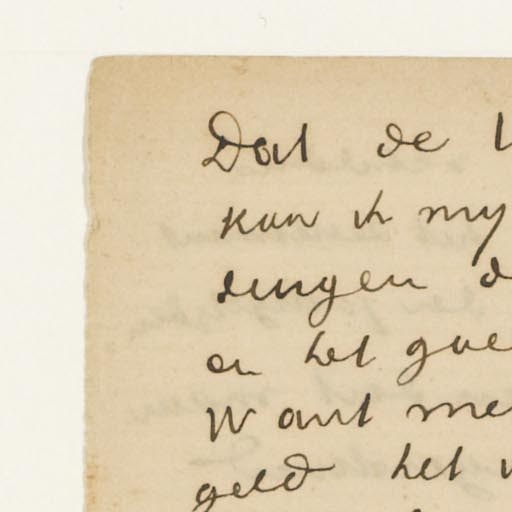 Dat de
kan ik my
dingen d
en het goe
Want me
geld het